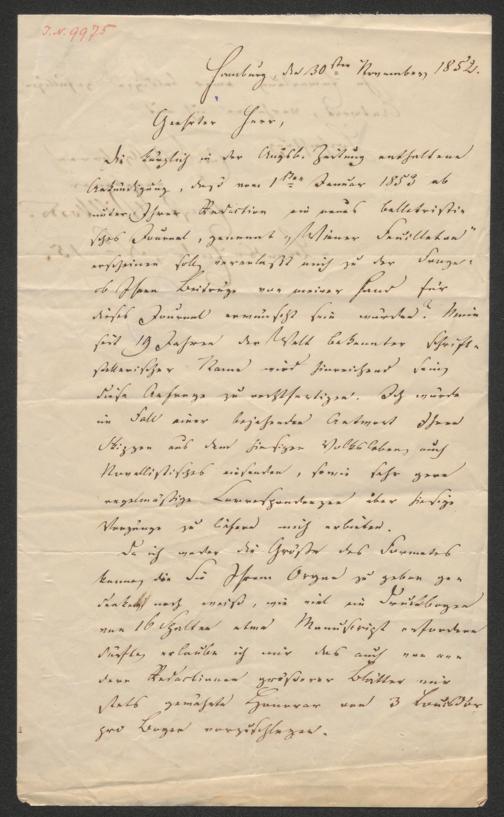 J. N. 9975
Hamburg den 30sten November 1852.
Geehrter Herr,
Die kürzlich in der Augsb. Zeitung enthaltene
Ankündigung, daß vom 1sten Januar 1853 ab
unter Ihrer Redaction ein neues belletristi-
sches Journal, genannt „Wiener Feuilleton"
erscheinen soll, veranlaßt mich zu der Frage:
ob Ihnen Beiträge von meiner Hand für
dieses Journal erwünscht sein würden? Mein
seit 19 Jahren der Welt bekannter schrift-
stellerischer Name wird hinreichend sein,
diese Anfrage zu rechtfertigen. Ich würde
im Fall einer bejahenden Antwort Ihnen
Skizzen aus dem hiesigen Volksleben, auch
Novellistisches einsenden, sowie sehr gern
regelmäßige Correspondenzen über hiesige
Vorgänge zu liefern mich erbieten.
Da ich weder die Größe des Formates
kenne, die Sie Ihrem Organ zu geben ge-
denken, noch weiß, wie viel ein Druckbogen
von 16 Spalten etwa Manuscript erfordern
dürfte, erlaube ich mir das auch von an-
dern Redactionen größerer Blätter mir
stets gewährte Honorar von 3 Louisdor
pro Bogen vorzuschlagen.